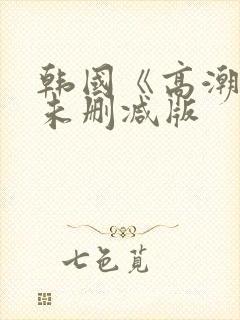 韩国《高潮
未删减版
七色苋